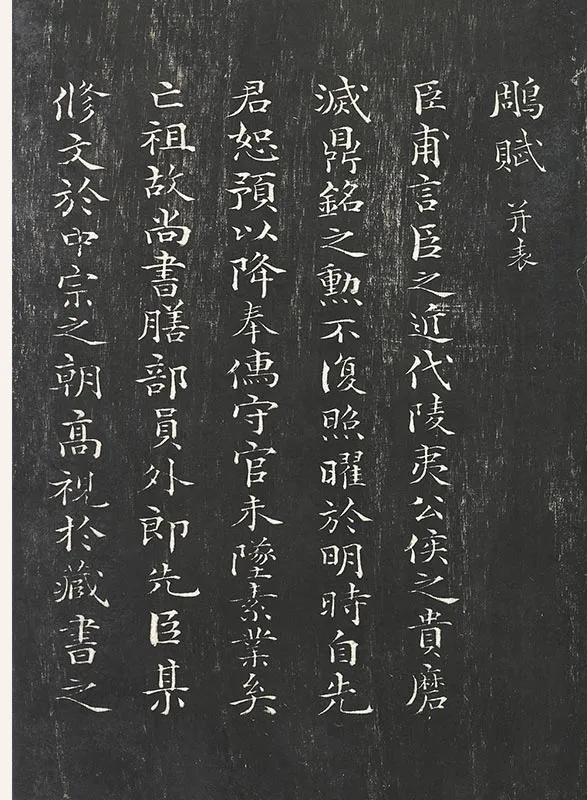 鵰賦 并表
臣甫言臣之近代陵夷公侯之貴磨
滅鼎銘之勳不復照曜於明時自先
君恕預以降奉儒守官未墜素業矣
亡祖故尚書膳部員外郎先臣某
修文於中宗之朝髙視於藏書之